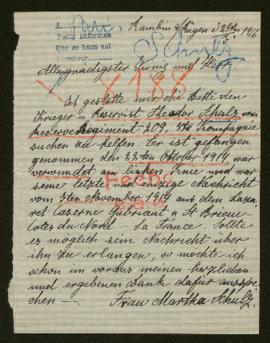 A Paris
Pide informes
Que se haga así
Rambin a/Rügen d. 29.
Schulz
Allergnädigster König und Herr
8188
Ich gestatte mir die Bitte den
Krieger u. Reservist Theodor Schulz vom
Reserveregiment 209. Kompagnie
suchen zu helfen. Er ist gefangen
genommen den 22ten Oktober 1914 war
verwundet am linken Knie und war
seine letzte und einzige Nachricht
vom 9ten November 1914 aus dem Laza-
ret Caserne Guébriant a St Brieuc
Cotes du Nord – La France. Sollte
es möglich sein Nachricht über
ihn zu erlangen, so möchte ich
schon im voraus meinen herzlichen
und ergebenen Dank dafür ausspre-
chen — Frau Martha Schulz.